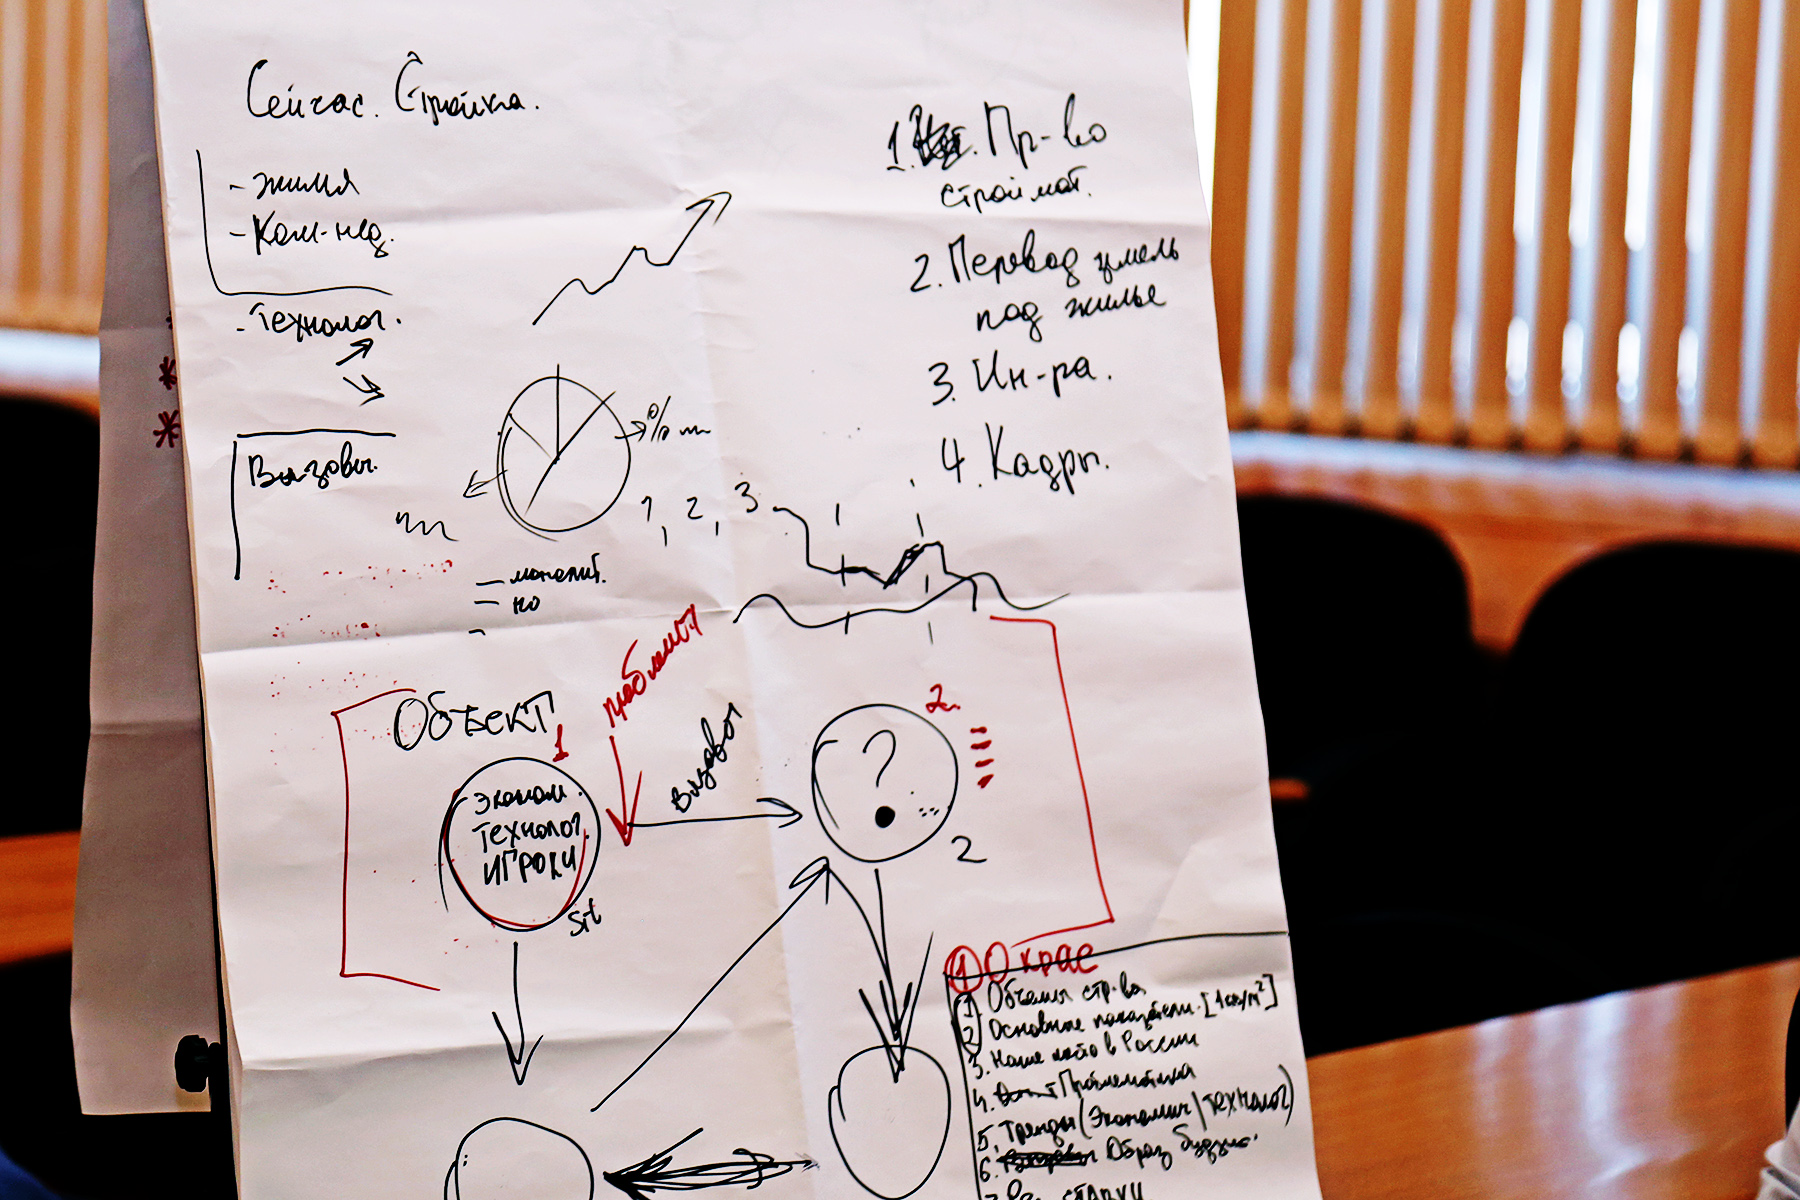 Сейчас. Стройка.
- жилья
- Ком-нед.
- технолог.
Вызовы.
1. Пр-во
строймат.
2. Перевод земель
под жилье
3. Ин-ра.
4. Кадры.
%
1, 2, 3
- монолит.
- но
проблемы
Объект
1
эконом.
технолог.
игроки
Sit
Вызовы
2.
?
2
1 О крае
1. Объемы стр-ва
2. Основные показатели. [1кв/м²]
3. Наше место в России
4. Проблематика
5. Тренды (Экономич/технолог)
6. Образ будущ.